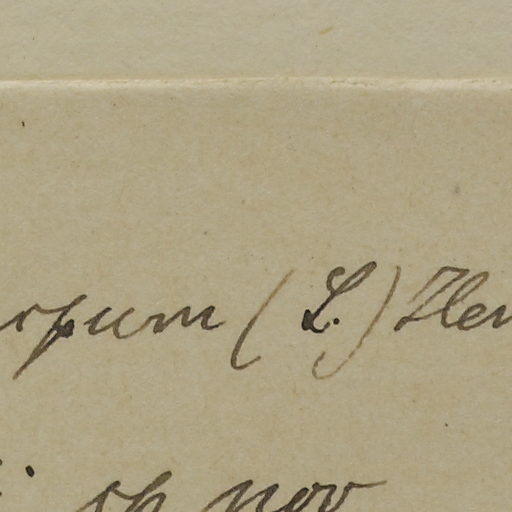 spum (L.) Hen
sp nov